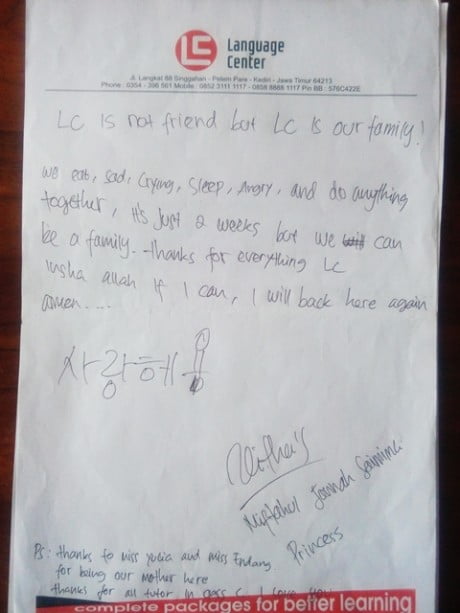 LC Language
Center
Jl. Langkat 88 Singgahan - Pelem Pare - Kediri - Jawa Timur 64213
Phone : 0354 - 396 561 Mobile : 0852 3111 1117 - 0858 8888 1117 Pin BB : 576C422E
LC is not friend but LC is our family!
we eat, sad, crying, sleep, angry, and do anything
together, it's just 2 weeks but we will can
be a family.. thanks for everything LC
insha allah if I can, I will back here again
amen....
사랑헤!
Miftahul Jannah
Princess
PS: thanks to miss yulia and miss Endang
for being our mother here
thanks for all tutor in
complete packages for better learning